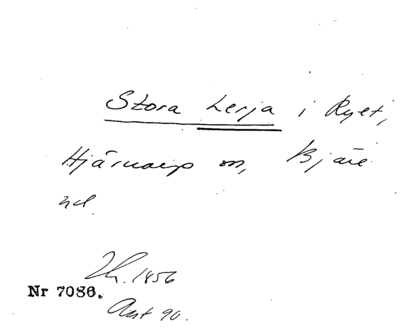 Stora Lerja i Ryet,
Hjärnarp sn, Bjäre
hd.
Lh. 1856
Nr 7086.
Ant 90.